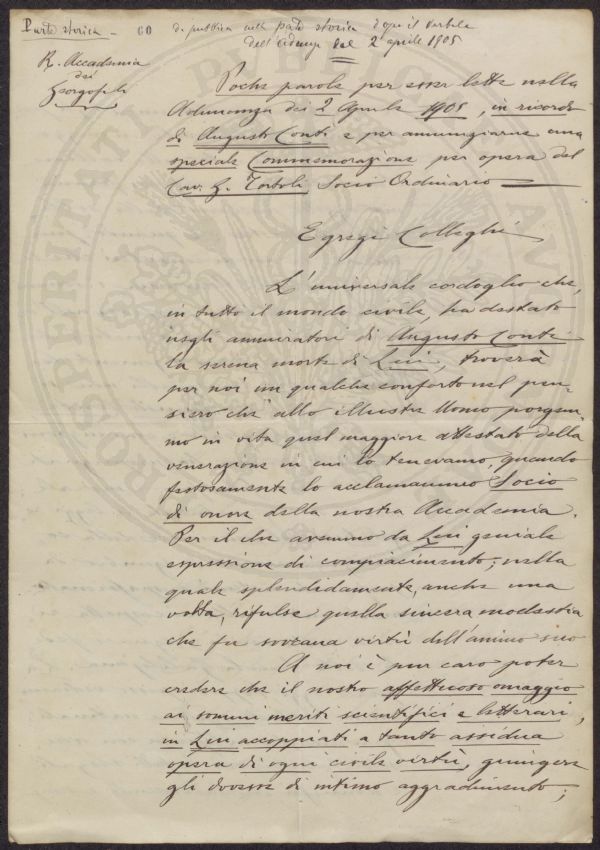 Parte storica - 60 da pubblica nella parte storica dopo il verbale
dell'adunza del 2 aprile 1905
R. Accademia
dei
Georgofili
Poche parole per esser lette nella
Adunanza dei 2 Aprile 1905, in ricordo
di Augusto Conti e per annunziarne una
speciale Commemorazione per opera del
Cav. G. Tortoli Socio Ordinario
Egregi Colleghi
L'universale cordoglio che,
in tutto il mondo civile, ha destato
negli ammiratori di Augusto Conti
la serena morte di Lui, troverà
per noi un qualche conforto nel pen-
siero che allo illustre Uomo porgem-
mo in vita quel maggiore attestato della
venerazione in cui lo tenevamo, quando
festosamente lo acclamammo Socio
di onore della nostra Accademia.
Per il che avemmo da Lui geniale
espressione di compiacimento; nella
quale splendidamente, anche una
volta, rifulse quella sincera modestia
che fu sovrana virtù dell'animo suo
A noi è pur caro poter
credere che il nostro affettuoso omaggio
ai sommi meriti scientifici e letterari,
in Lui accoppiati a tanto assidua
opera di ogni civile virtù, giungere
gli dovesse di intimo aggradimento;
PROSPERITATI PUBLICAE AU